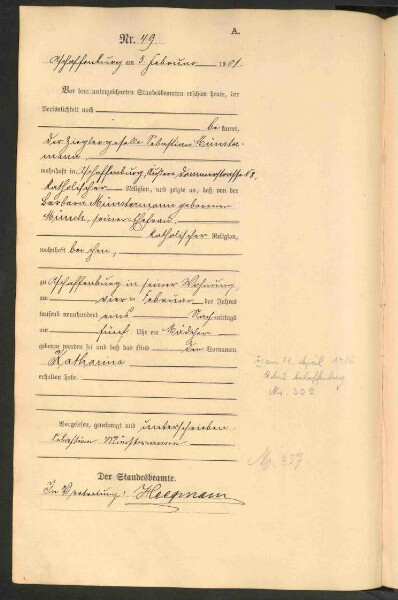 A.
Nr. 49.
Aschaffenburg am 5. Februar 1901.
Vor dem unterzeichneten Standesbeamten erschien heute, der
Persönlichkeit nach
bekannt,
der Zieglergeselle Sebastian Münster-
mann,
wohnhaft in Aschaffenburg, Dammerstraße 8,
katholischer Religion, und zeigte an, daß von der
Barbara Münstermann geborenen
seiner Ehefrau,
katholischer Religion,
wohnhaft bei ihm,
zu Aschaffenburg in seiner Wohnung,
am Februar des Jahres
tausend neunhundert eins Nachmittags
um fünf Uhr ein Mädchen
geboren worden sei und daß das Kind den Vornamen
Katharina
erhalten habe.
Vorgelesen, genehmigt und unterschrieben
Sebastian Münstermann
Der Standesbeamte.
In Vertretung:
am 12. April
Aschaffenburg
Nr.
Nr. 357